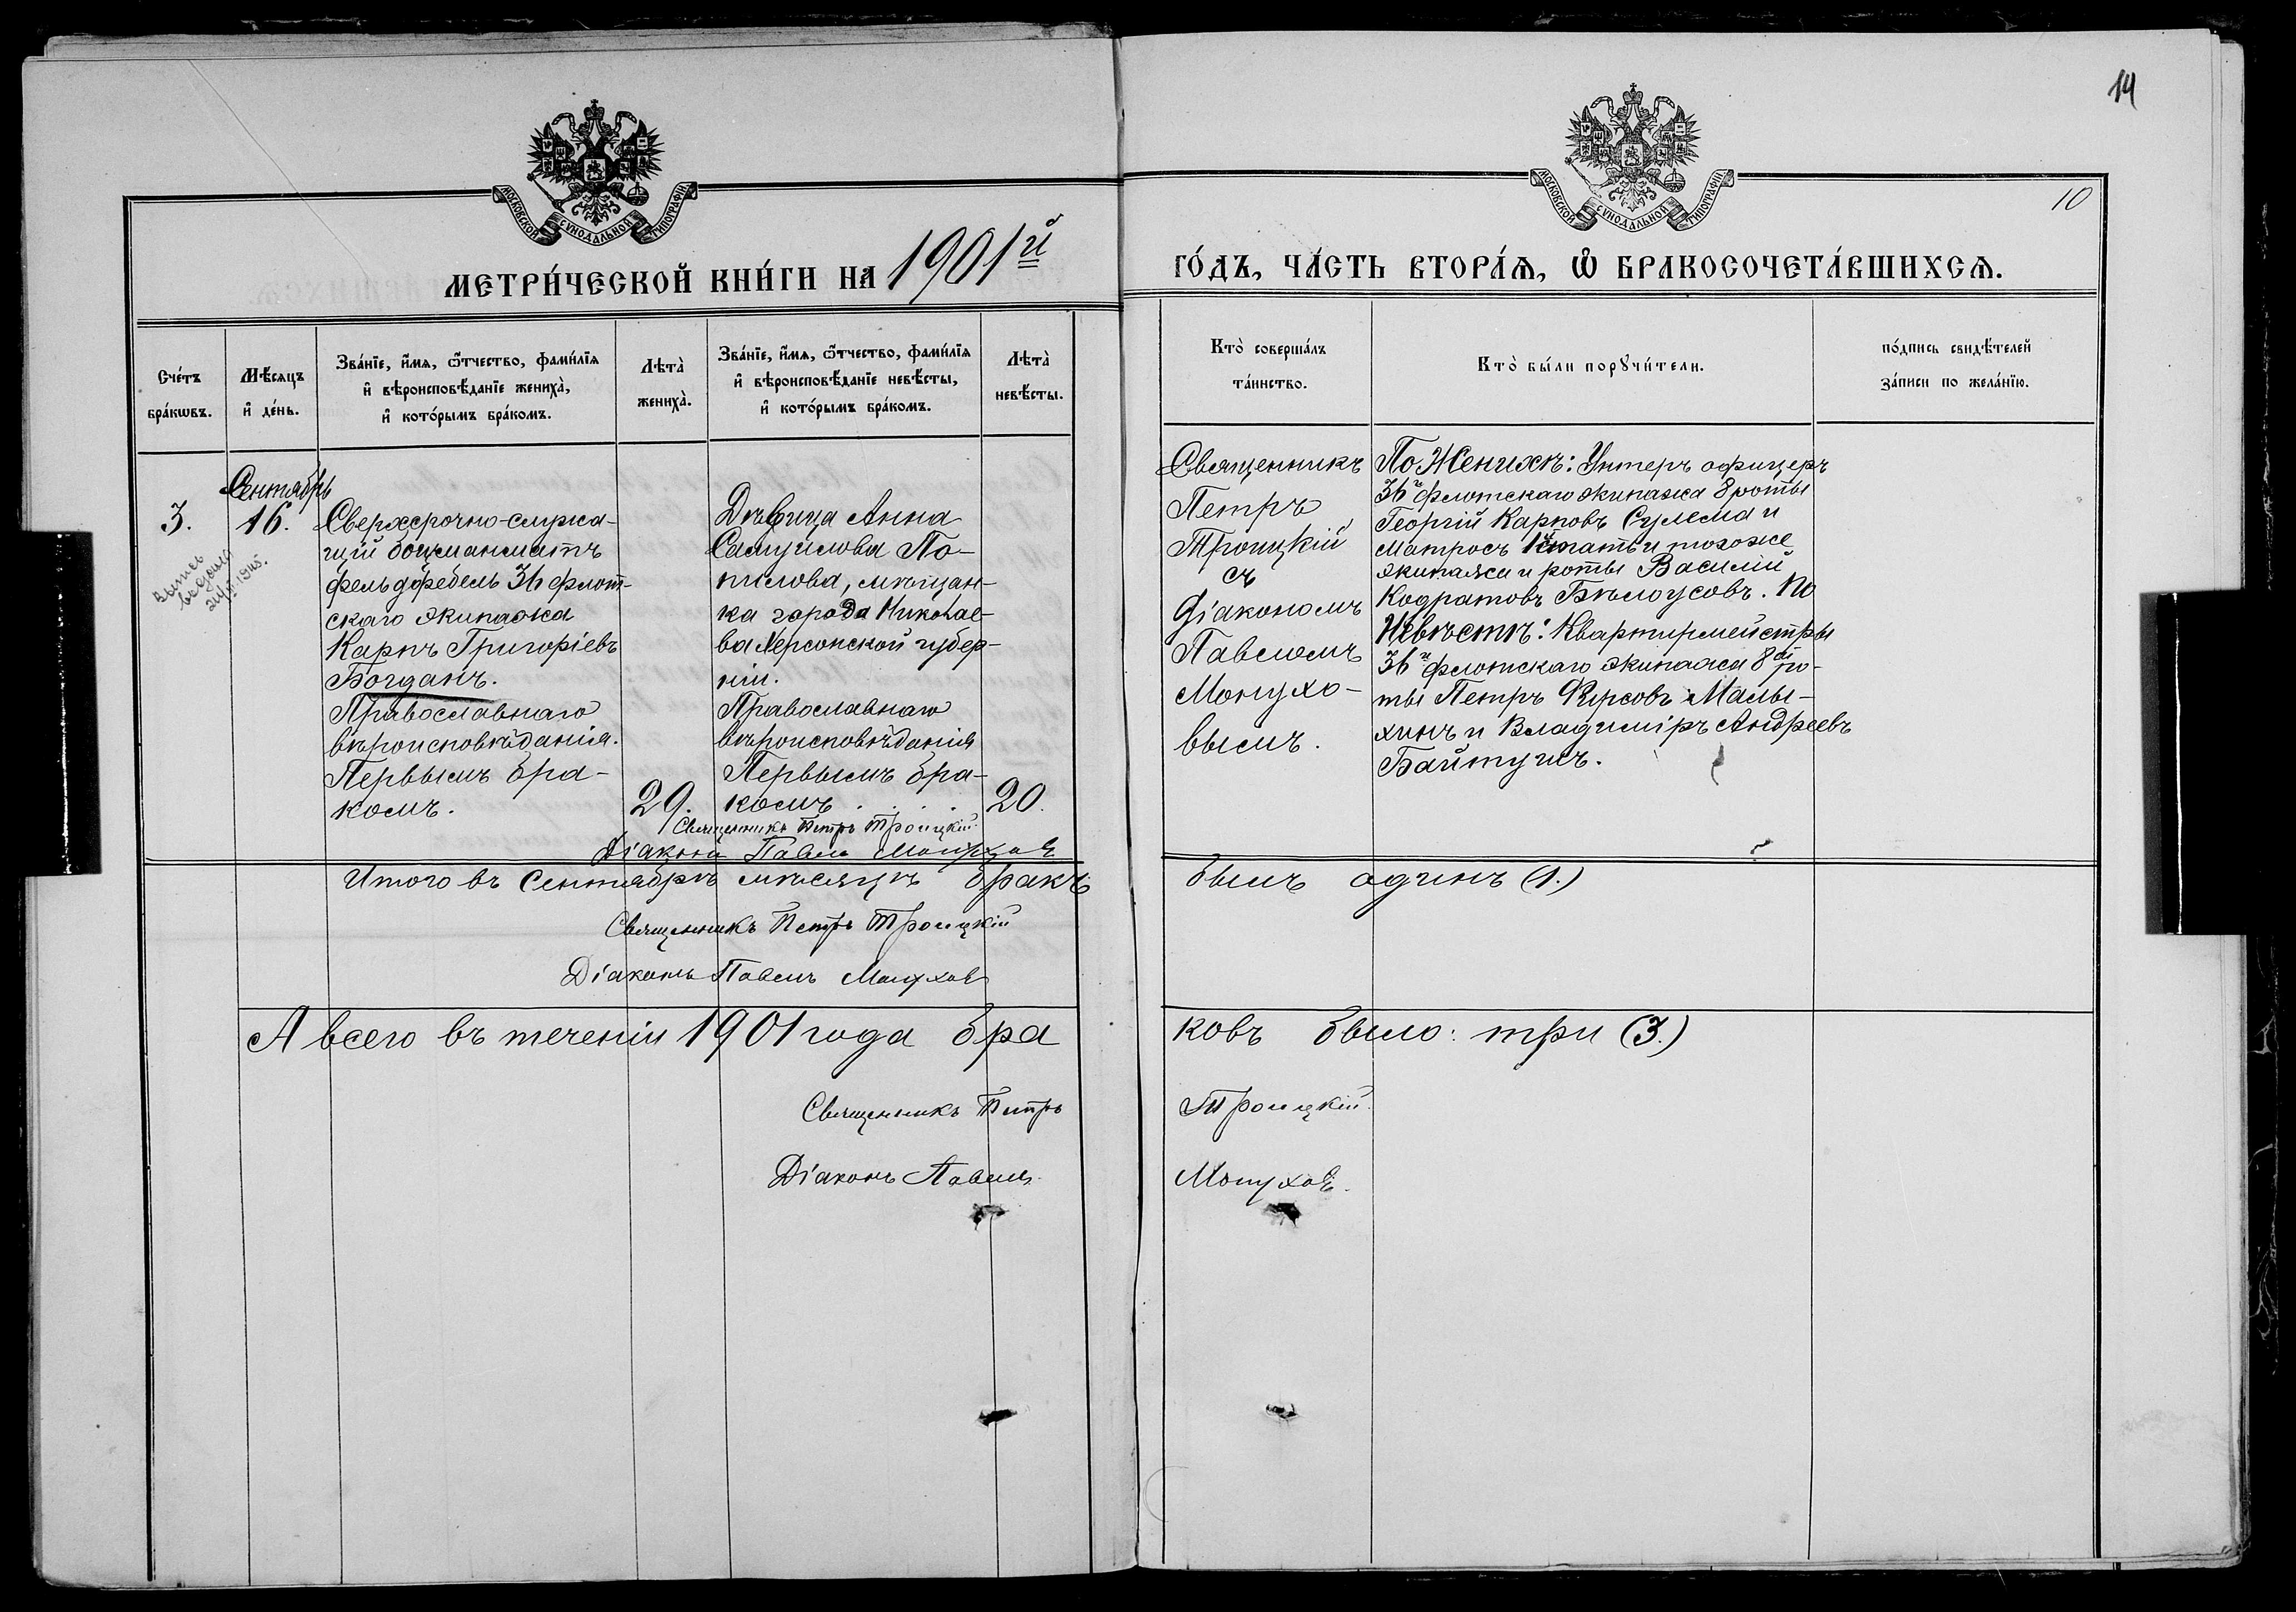 14
10
МОСКОВСКОЙ СѴНОДАЛЬНОЙ ТИПОГРАФІИ
МОСКОВСКОЙ СѴНОДАЛЬНОЙ ТИПОГРАФІИ
МЕТРИ́ЧЕСКОЙ КНИ́ГИ НА 1901й
ГО́ДЪ, ЧА́СТЬ ВТОРА́Ѧ, Ѡ҆ БРАКОСОЧЕТА́ВШИХСѦ.
Сче́тъ
бра́кѡвъ.
Мѣ́сѧцъ
и҆ де́нь.
Зва́нїе, и҆́мѧ, ѻ҆́тчество, фами́лїѧ
и҆ вѣроисповѣ́данїе жениха̀,
и҆ кото́рымъ бра́комъ.
Лѣта̀
жениха̀.
Зва́нїе, и҆́мѧ, ѻ҆́тчество, фами́лїѧ
и҆ вѣроисповѣ́данїе невѣ́сты,
и҆ кото́рымъ бра́комъ.
Лѣта̀
невѣ́сты.
Кто̀ соверша́лъ
та́инство.
Кто̀ бы́ли порꙋчи́тели.
по́дпись свидѣ́телей
за́писи по жела́нїю.
3.
Сентябрь
16.
Сверхсрочно-служа-
щій боцманматъ
фельдфебель 36 флот-
скаго экипажа
Карпъ Григоріевъ
Богданъ.
Православнаго
вѣроисповѣданія.
Первымъ бра-
комъ.
29.
Дѣвица Анна
Самуилова По-
пилова, мѣщан-
ка города Николае-
ва Херсонской губер-
ніи.
Православнаго
вѣроисповѣданія
Первымъ бра-
комъ . . . .
20.
Священникъ
Петръ
Троицкій
съ
Діакономъ
Павломъ
Мопухо-
вымъ.
По Женихѣ: Унтеръ офицеръ
36й флотскаго экипажа 8 роты
Георгій Карповъ Сулема и
матросъ 1й статьи тогоже
экипажа и роты Василій
Кодратовъ Бѣлоусовъ. По
Невѣстѣ: Квартирмейстры
36й флотскаго экипажа 8й ро-
ты Петръ Фирсовъ Малы-
хинъ и Владиміръ Андреевъ
Байтугъ.
Священникъ Петръ Троицкій
Діаконъ Павелъ Мопуховъ
Итого въ Сентябрѣ мѣсяцѣ бракъ былъ одинъ (1.)
Священникъ Петръ Троицкій
Діаконъ Павелъ Мопуховъ
А всего въ теченіи 1901 года браковъ было: три (3.)
Священникъ Петръ Троицкій
Діаконъ Павелъ Мопуховъ.